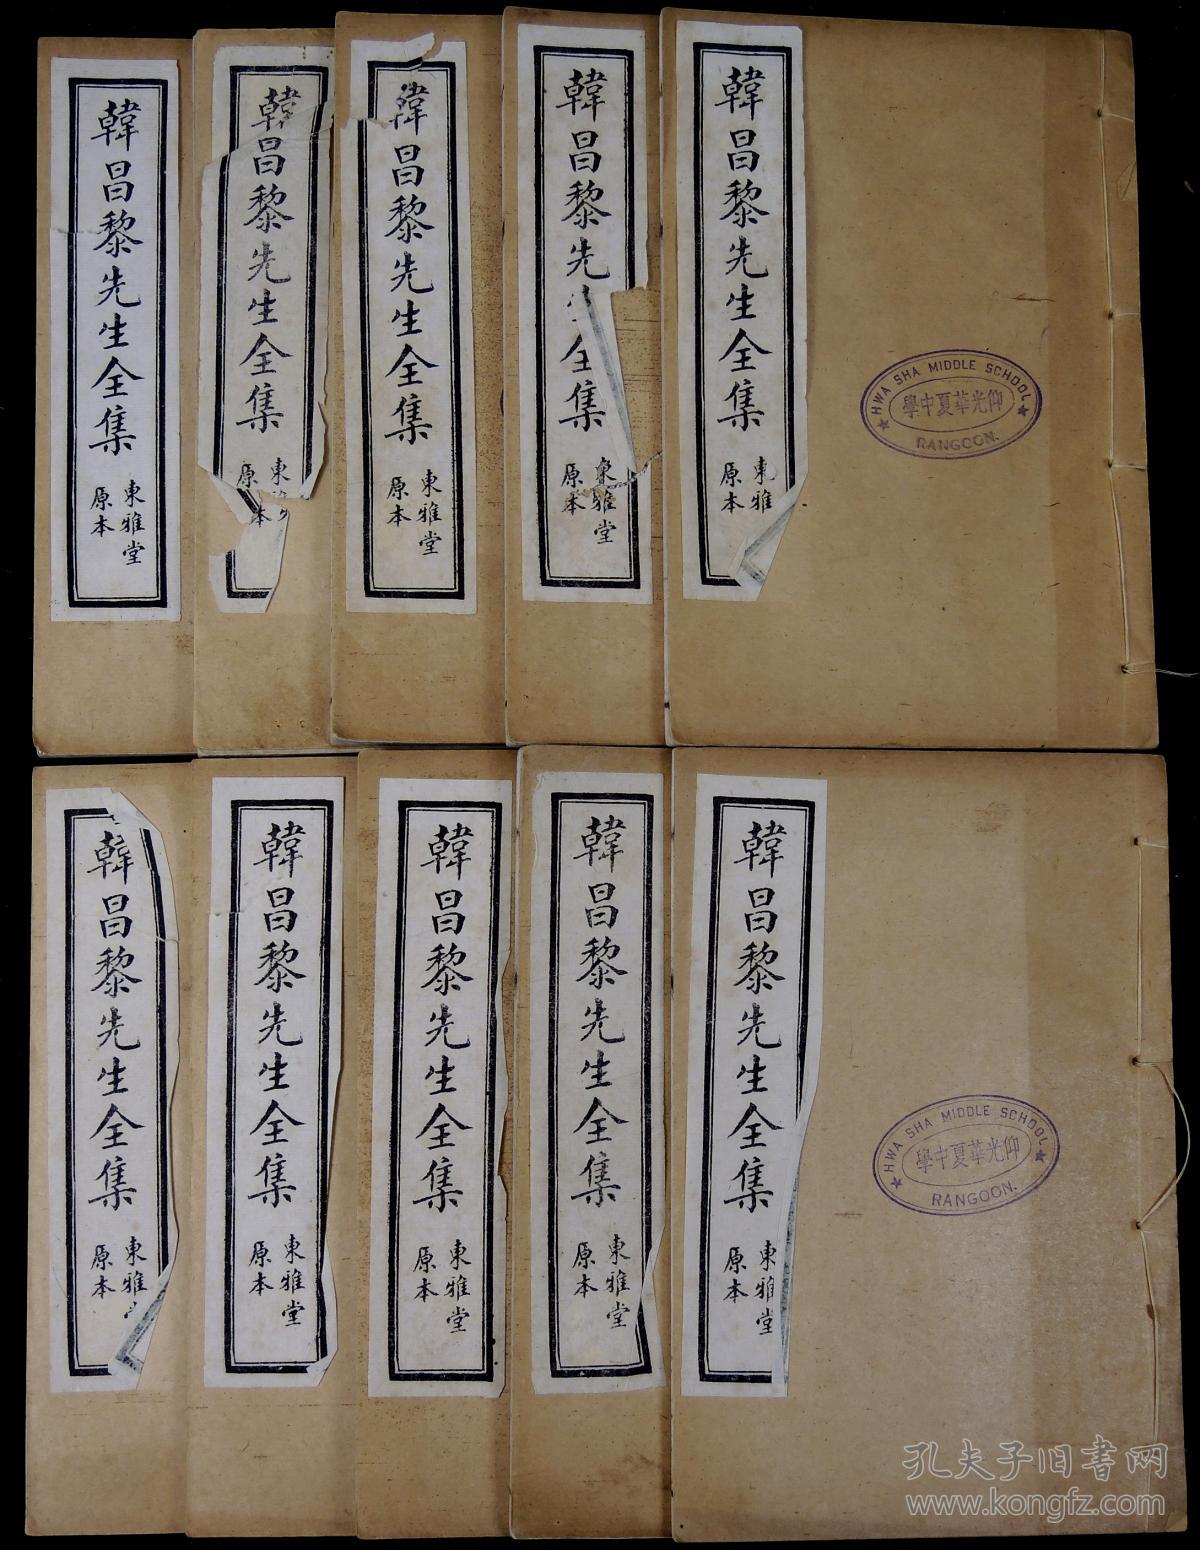 韓昌黎先生全集
東雅堂
原本
韓昌黎先生全集
東雅
原本
韓昌黎先生全集
東雅堂
原本
韓昌黎先生全集
東雅堂
原本
韓昌黎先生全集
東雅
原
HWA SHA MIDDLE SCHOOL
學中夏華光仰
RANGOON.
韓昌黎先生全集
東雅
原本
韓昌黎先生全集
東雅堂
原本
韓昌黎先生全集
東雅堂
原本
韓昌黎先生全集
東雅堂
原本
韓昌黎先生全集
東雅堂
原本
HWA SHA MIDDLE SCHOOL
學中夏華光仰
RANGOON.
孔夫子旧書网
www.kongfz.com